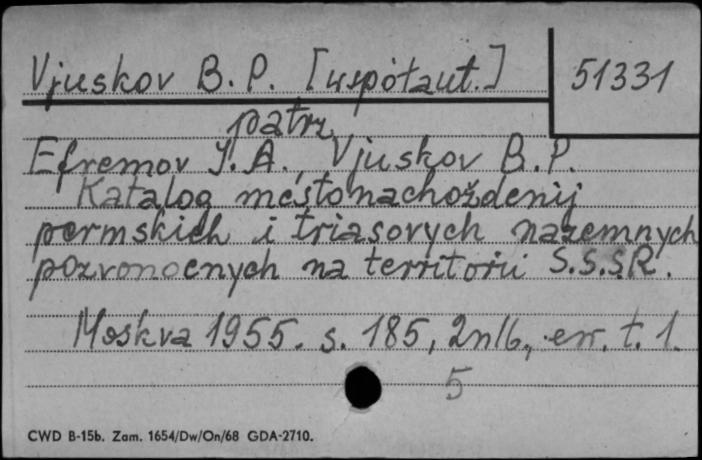 Vjuskov B. P. [współaut.]
51331
patrz
Efremov J. A., Vjuskov B. P.
Katalog mestonachoždenij
permskich i triasovych nazemnych
pozvonocnych na territorii S.S.S.R.
Moskva 1955. s. 185, 2nlb., err. t. 1.
5
CWD B-15b. Zam. 1654/Dw/On/68 GDA-2710.